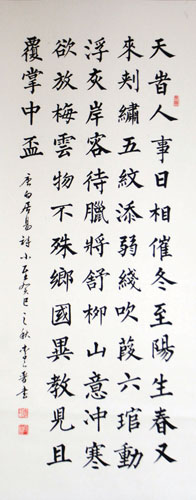 天旹人事日相催冬至陽生春又
來刺繡五紋添弱綫吹葭六琯動
浮灰岸容待臘將舒柳山意冲寒
欲放梅雲物不殊鄉國異教兒且
覆掌中盃
唐白居易詩小至癸巳之秋書